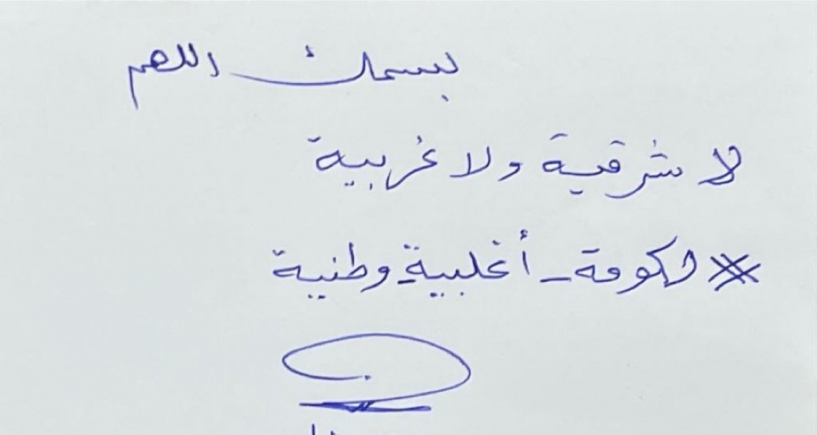 بسمك اللهم
لا شرقية ولا غربية
حكومة_أغلبية_وطنية